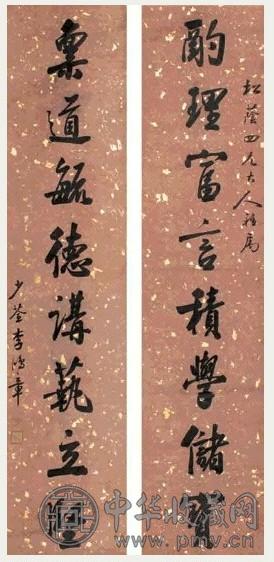 松蔭四兄大人雅屬
酌理富言積學儲
稟道毓德講藝立
少荃李鴻章
中华收藏网
www.pmv.cn